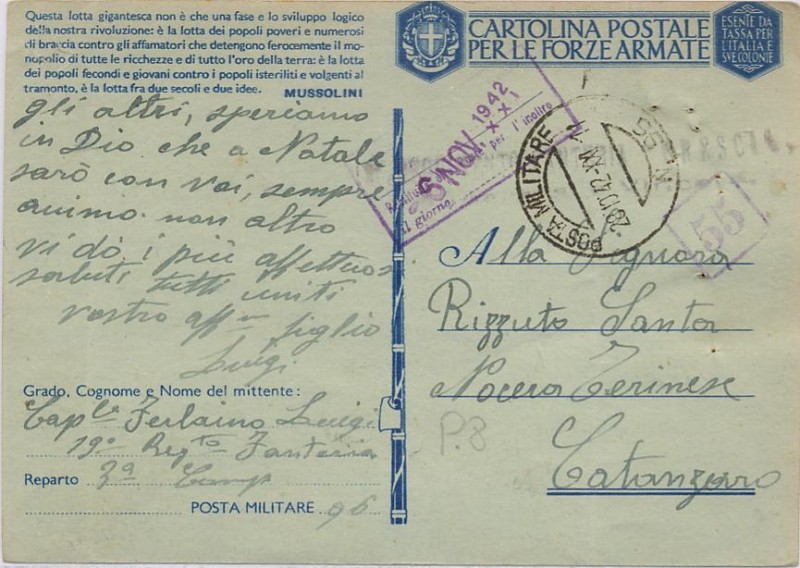 Questa lotta gigantesca non è che una fase e lo sviluppo logico
della nostra rivoluzione: è la lotta dei popoli poveri e numerosi
di braccia contro gli affamatori che detengono ferocemente il mo-
nopolio di tutte le ricchezze e di tutto l'oro della terra: è la lotta
dei popoli fecondi e giovani contro i popoli isteriliti e volgenti al
tramonto, è la lotta fra due secoli e due idee.
MUSSOLINI
gli altri, speriamo
in Dio che a Natale
sarò con voi, sempre
animo. non altro
vi dò i più affettuosi
saluti tutti uniti
vostro aff.mo figlio
Luigi
Grado, Cognome e Nome del mittente:
Cap.le Ferlaino Luigi
19° Regg.to Fanteria
Reparto 3ª Comp
POSTA MILITARE 96
CARTOLINA POSTALE
PER LE FORZE ARMATE
ESENTE DA
TASSA PER
L'ITALIA E
SVE COLONIE
5 NOV. 1942
XXI
per l'inoltro
il giorno
POSTA MILITARE
N. 55
55
Alla Signora
Rizzuto Santa
Nocera Terinese
Catanzaro
P.8